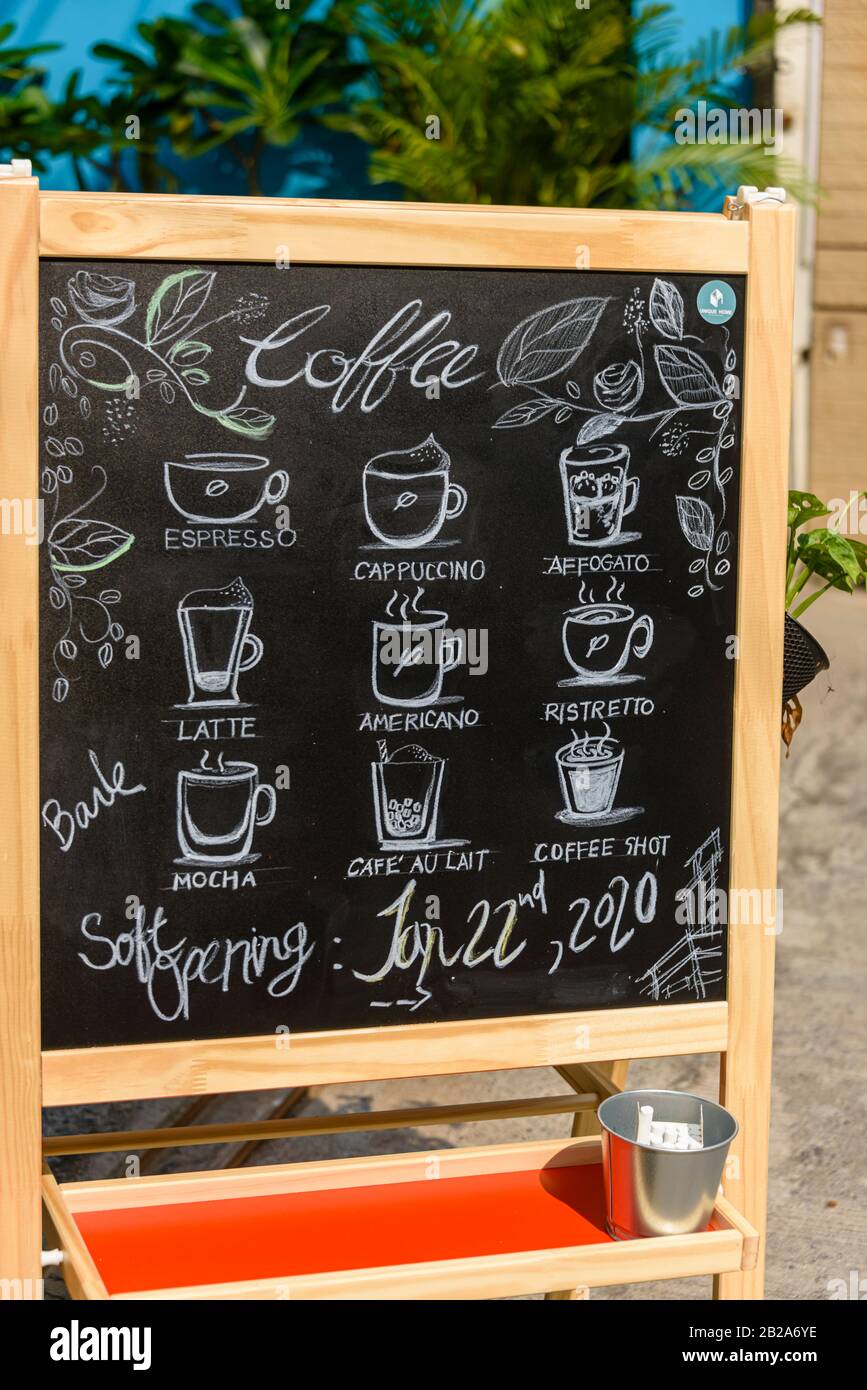 Coffee
UNIQUE HOME
ESPRESSO
CAPPUCCINO
AFFOGATO
LATTE
AMERICANO
RISTRETTO
Bark
MOCHA
CAFE' AU LAIT
COFFEE SHOT
Soft opening : Jan 22nd, 2020
alamy
Image ID: 2B2A6YE
www.alamy.com